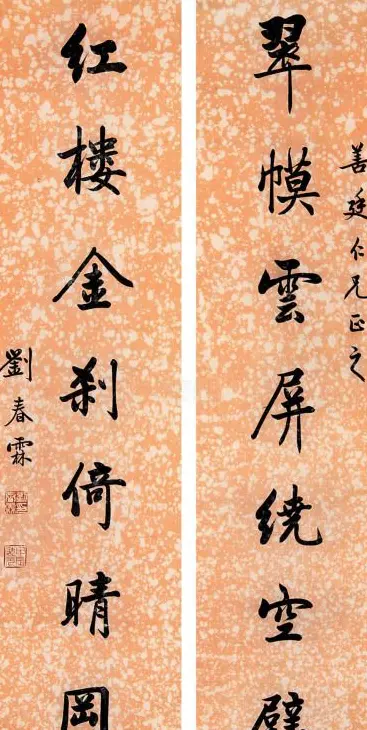 善廷仁兄正之
翠幙雲屏繞空
紅樓金刹倚晴岡
劉春霖